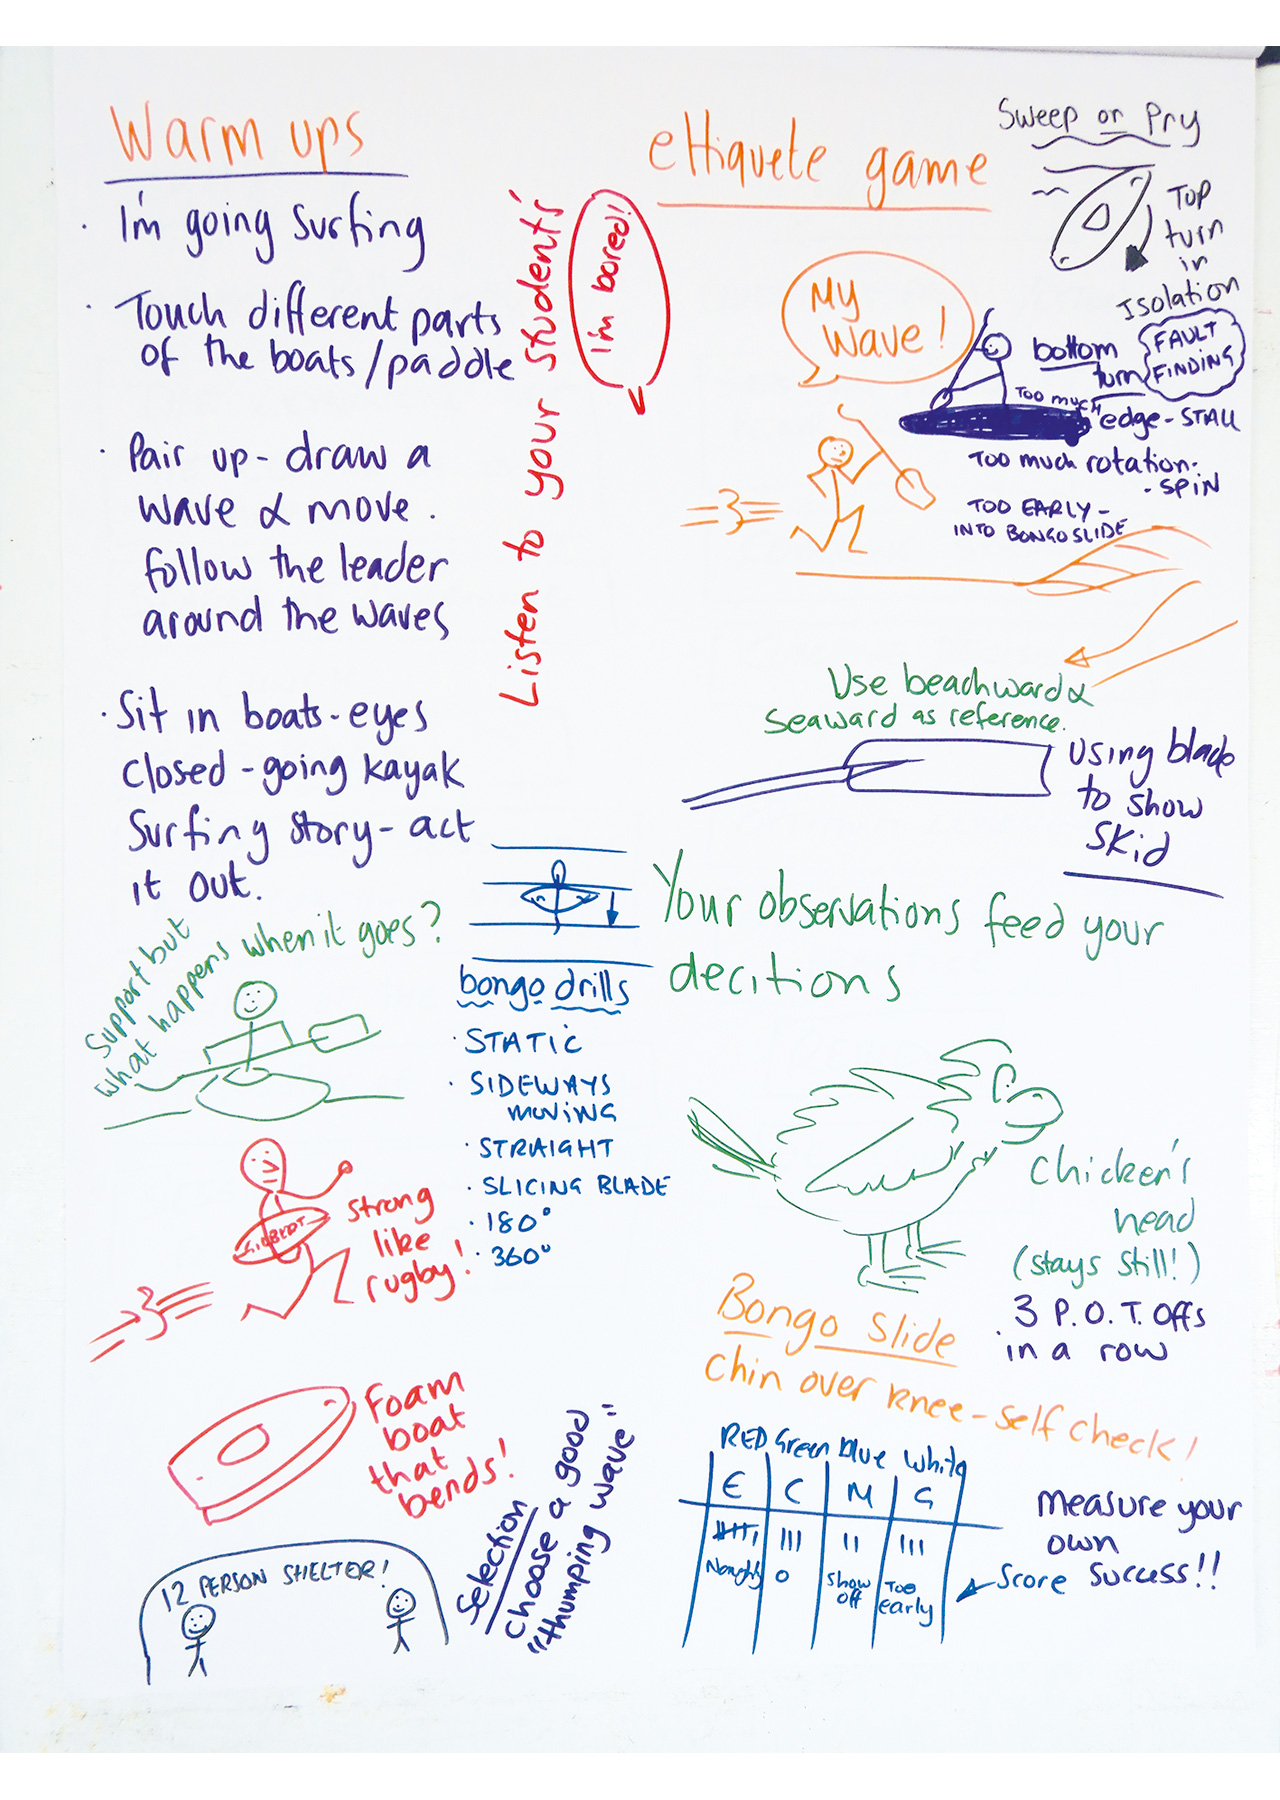 Warm ups
· I'm going surfing
· Touch different parts
of the boats/paddle
· Pair up - draw a
wave & move.
follow the leader
around the waves
· Sit in boats - eyes
closed - going kayak
surfing story - act
it out.
Listen to your student's
I'm bored!
ettiquete game
My
wave!
Sweep or Pry
Top
turn
in
Isolation
FAULT
FINDING
bottom
turn
TOO much
edge - STALL
TOO much rotation -
- SPIN
TOO EARLY -
INTO BONGO SLIDE
Use beachward &
seaward as reference.
using blade
to show
skid
Your observations feed your
decitions
Support but
what happens when it goes?
bongo drills
· STATIC
· SIDEWAYS
moving
· STRAIGHT
· SLICING BLADE
· 180°
· 360°
strong
like
rugby!
Chicken's
head
(stays still!)
3 P.O.T. offs
in a row
Bongo slide
chin over knee - self check!
Foam
boat
that
bends!
Selection
choose a good
"thumping wave"
12 PERSON SHELTER!
RED Green blue white
E C M G
Naughty 0 show off Too early
measure your
own
score success!!